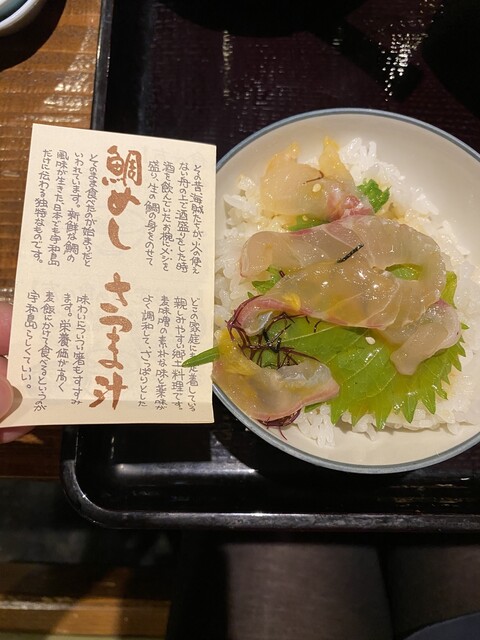 鯛めし
その昔海賊たちが火の使え
ない舟の上で酒盛りをした時
酒を飲んでいたお椀にメシを
盛り、生の鯛の身をのせて
そのまま食べたのが始まりだと
いわれています。新鮮な鯛の
風味が生きた日本でも宇和島
だけに伝わる独特なものです。
さつま汁
どこの家庭にも定着している
親しみやすい郷土料理です。
麦味噌の素朴な味と薬味が
よく調和して、さっぱりとした
味わいについつい箸もすすみ
ます。栄養価が高く
麦飯にかけて食べるというのが
宇和島らしくていい。